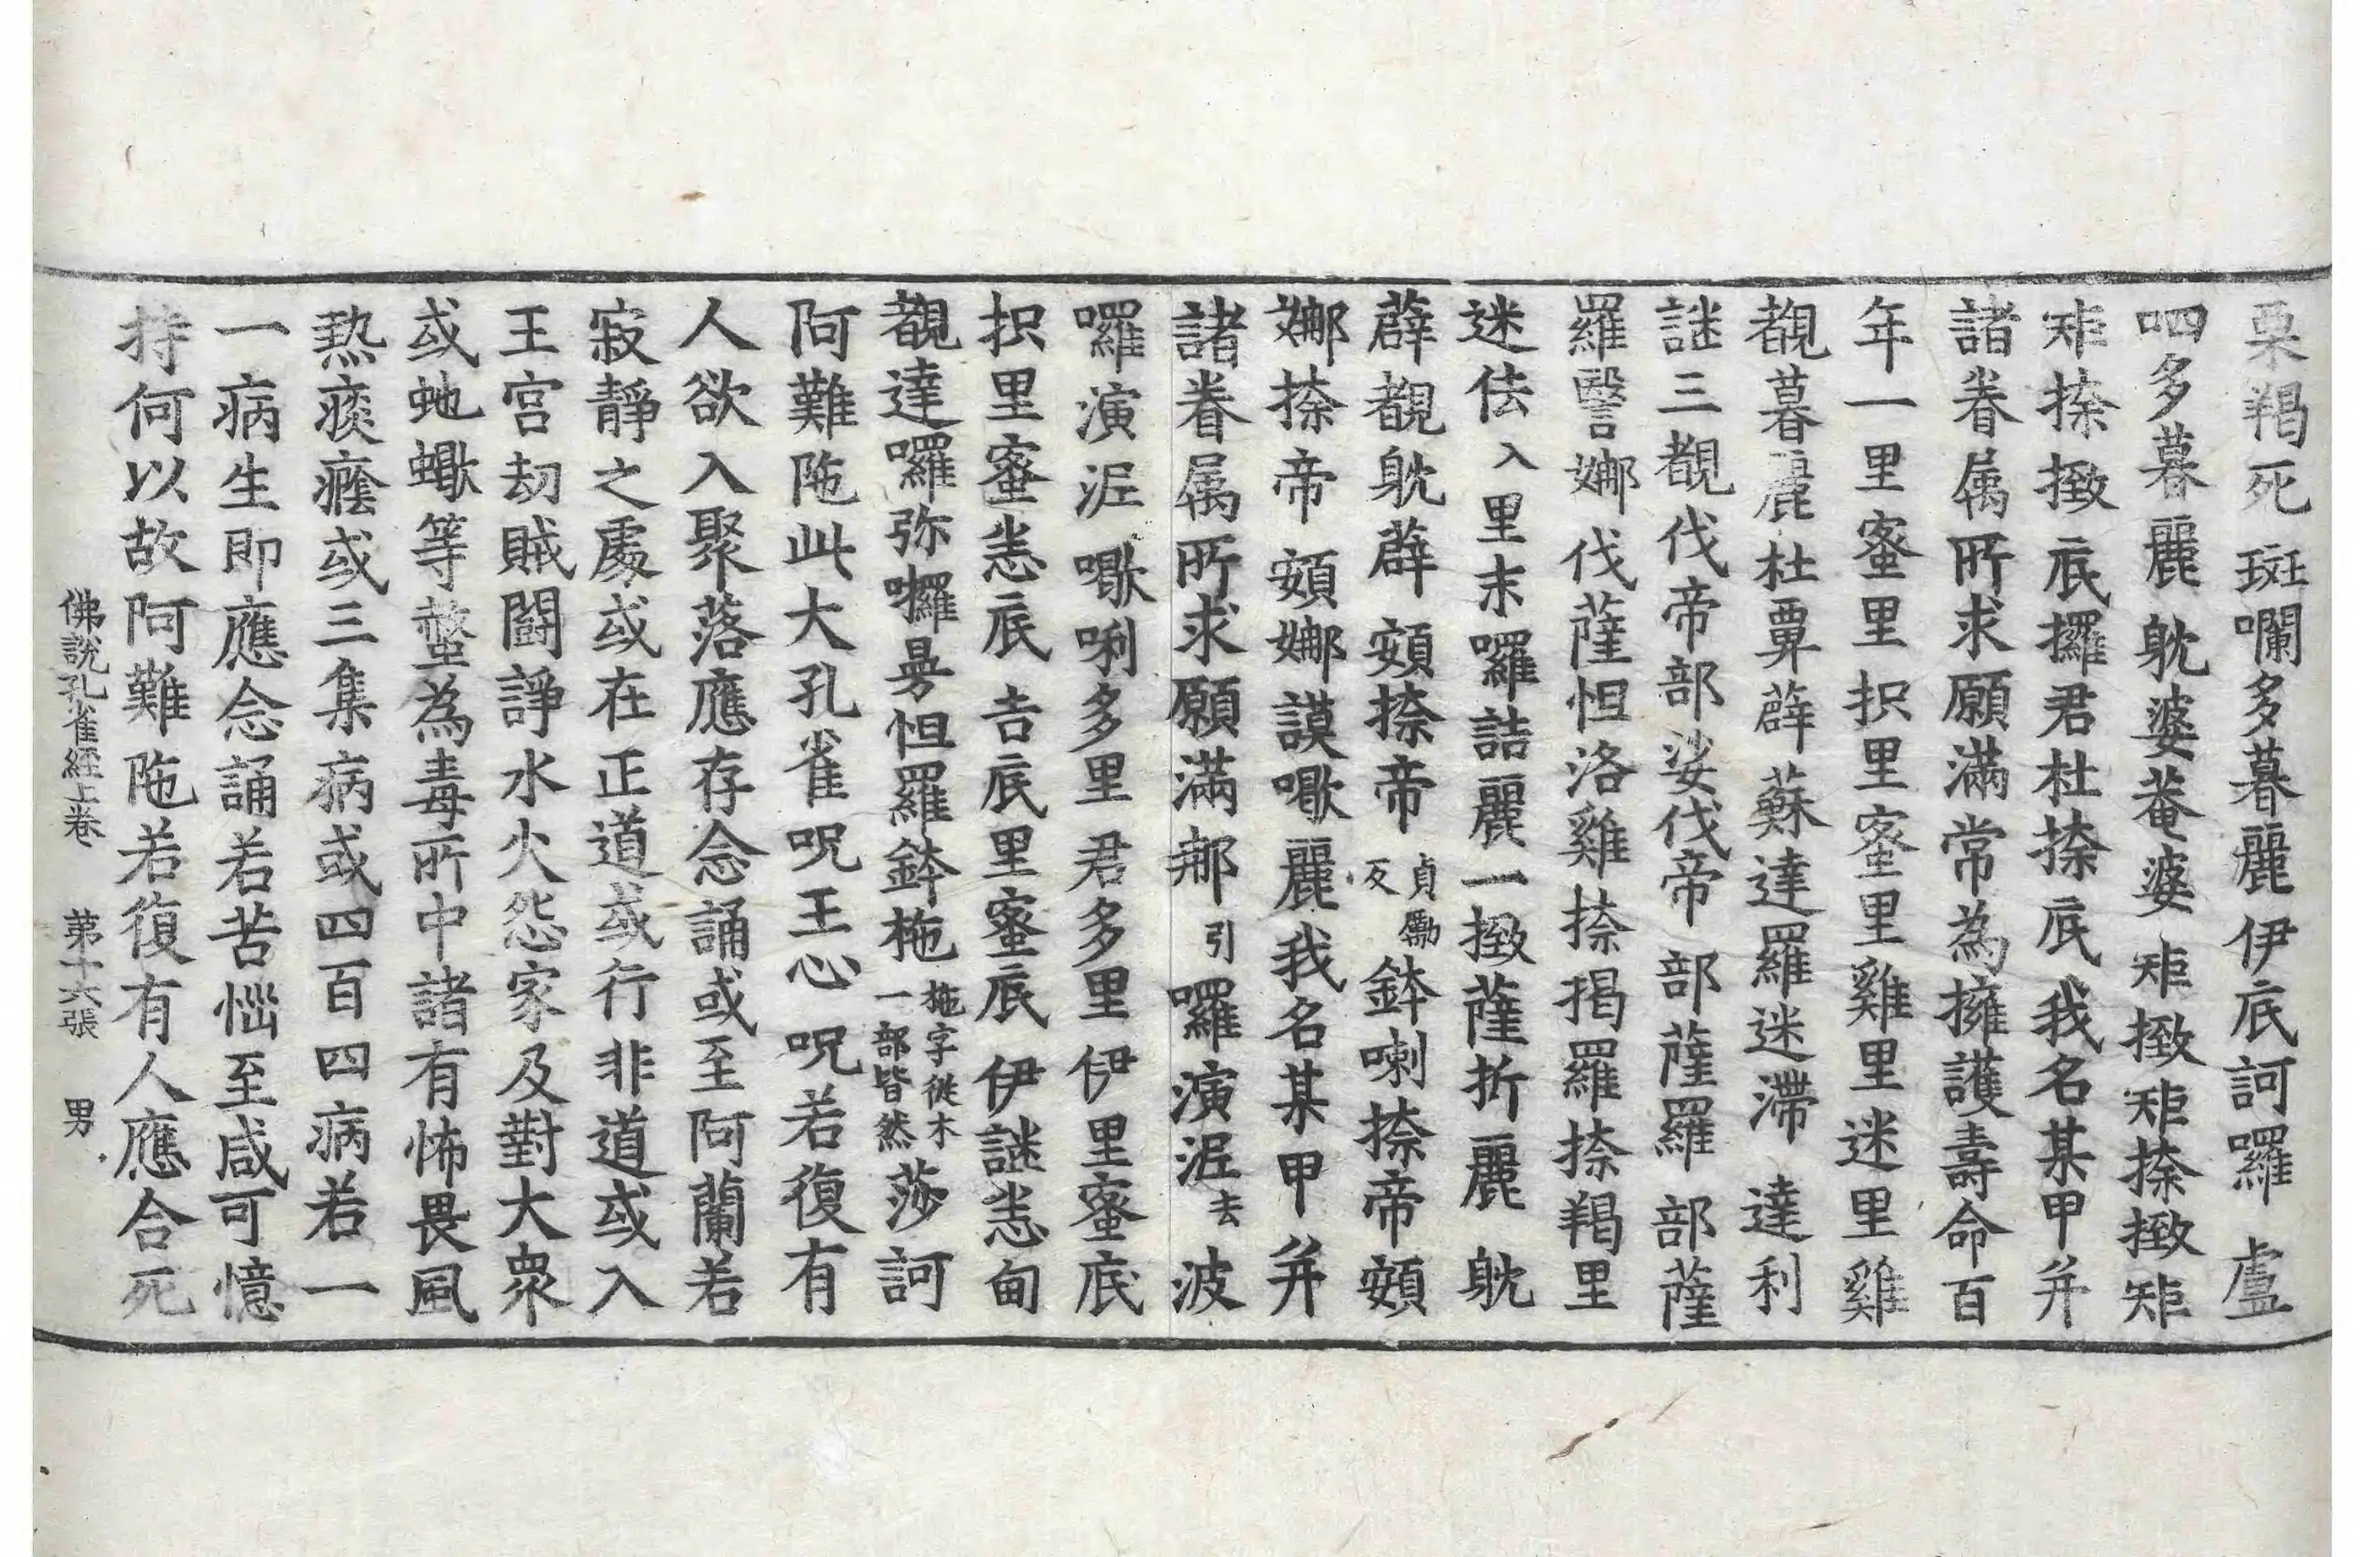 栗羯死 斑囒多暮麗 伊底訶囉 盧
呬多暮麗 躭婆菴婆 矩撴矩捺撴矩
矩捺撴 底攞君杜捺底 我名某甲并
諸眷属所求願滿常為擁護壽命百
年一里蜜里 抧里蜜里雞里迷里雞
覩暮麗 杜覃薜蘇達羅迷滯 達利
謎三覩伐帝部 娑伐帝 部薩羅 部薩
羅謦娜 伐薩怛洛雞捺揭羅捺羯里
迷佉入里末囉詰麗一撴薩折麗 躭
薜覩躭薜 頞捺帝貞勵反鉢喇捺帝 頞
娜捺帝 頞娜謨嚈麗我名某甲并
諸眷属所求願滿 那引囉演泥去 波
囉演泥 嚈唎多里 君多里 伊里蜜底
抧里蜜恙底 吉底里蜜底 伊謎恙甸
覩達囉弥囉曼怛羅鉢柂柂字從木一部皆然莎訶
阿難陁此大孔雀呪王心呪若復有
人欲入聚落應存念誦或至阿蘭若
寂靜之處或在正道或行非道或入
王宮劫賊鬪諍水火怨家及對大衆
或虵蠍等螫為毒所中諸有怖畏風
熱痰癊或三集病或四百四病若一
一病生即應念誦若苦惱至咸可憶
持何以故阿難陁若復有人應合死
佛說孔雀經上卷 苐十六張 男